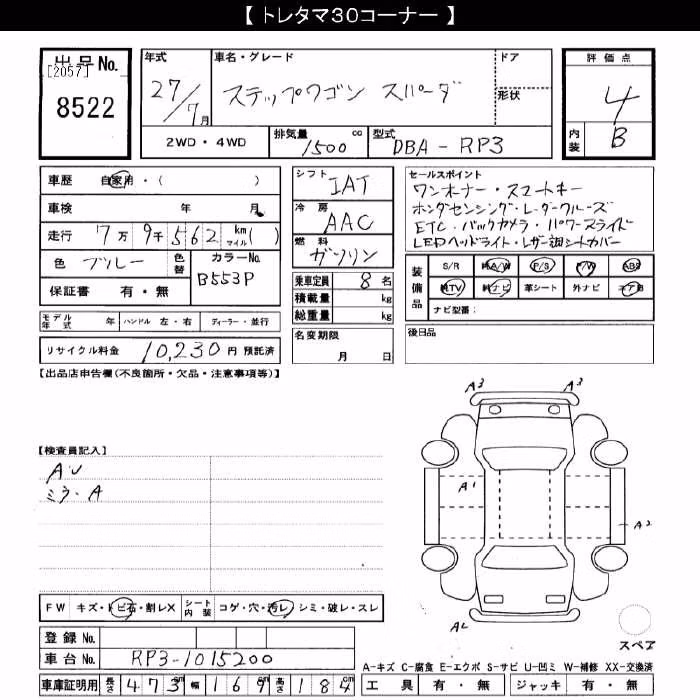 【 トレタマ30コーナー 】
出品No.
[2057]
8522
年式
27/7月
車名・グレード
ステップワゴン スパーダ
ドア
形状
2WD・4WD
排気量
1500 cc
型式
DBA-RP3
評価点
4
内装
B
車歴 自家用・( )
車検 年 月
走行 7万9千562 km マイル( )
色 ブルー
色替
カラーNo.
B553P
保証書 有・無
モデル年式 年 ハンドル 左・右 ディーラー・並行
リサイクル料金 10,230円 預託済
シフト
IAT
冷房
AAC
燃料
ガソリン
乗車定員 8名
積載量 kg
総重量 kg
名変期限
月 日
セールスポイント
ワンオーナー・スマートキー
ホンダセンシング・レーダークルーズ
ETC・バックカメラ・パワースライド
LEDヘッドライト・レザー調シートカバー
装備品
S/R 純A/W P/S P/W ABS
純TV 純ナビ 革シート 外ナビ エアB
ナビ型番:
後日品
【出品店申告欄(不良箇所・欠品・注意事項等)】
【検査員記入】
AU
ミラ・A
A3 A3
A1
A2
A2
スペア
FW キズ・トビ石・割レX シート内装 コゲ・穴・汚レ・シミ・破レ・スレ
登録 No.
車台 No. RP3-1015200
車庫証明用 長さ 473cm 幅 169cm 高さ 184cm
A-キズ C-腐食 E-エクボ S-サビ U-凹ミ W-補修 XX-交換済
工具 有・無 ジャッキ 有・無